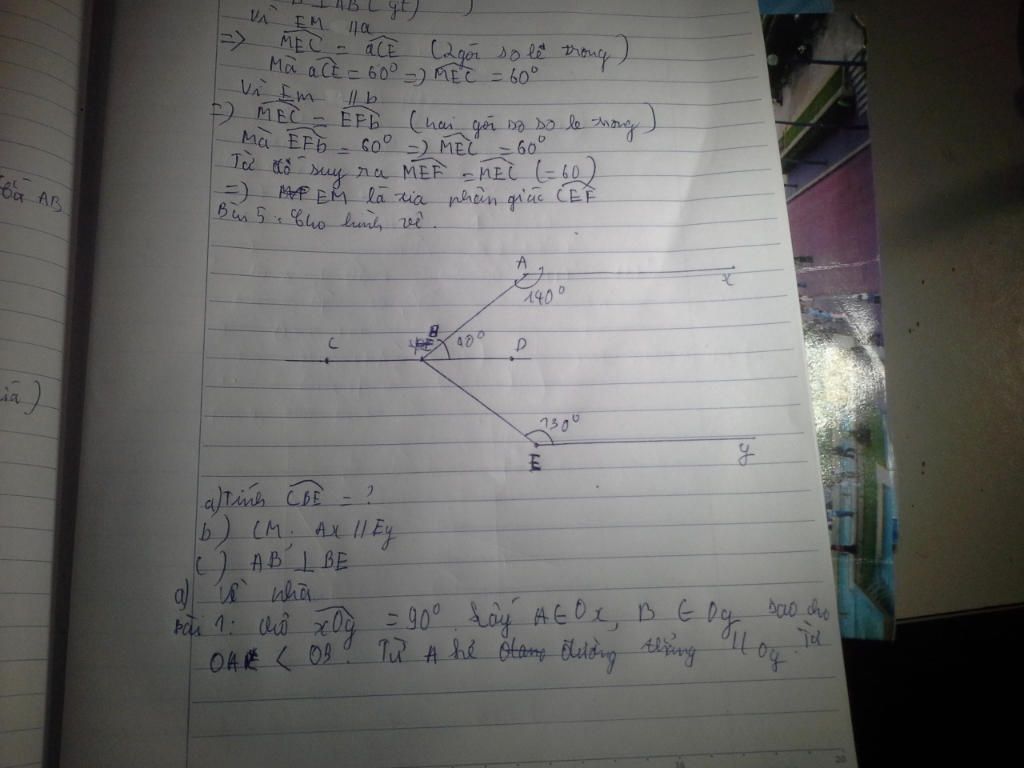 Vì EM //a
=> MEC = aCE (2 góc so le trong)
Mà aCE = 60° => MEC = 60°
Vì Em //b
=> MEC = EFb (hai góc so so le trong)
Mà EFb = 60° => MEC = 60°
Từ đó suy ra MEF = MEC (= 60)
=> EM là tia phân giác CEF
Bài 5: Cho hình vẽ.
A
140°
x
C
B
40°
D
130°
E
y
a) Tính CBE = ?
b) CM: Ax // Ey
c) AB ⊥ BE
Về nhà
Bài 1: Cho xOy = 90°. Lấy A ∈ Ox, B ∈ Oy sao cho
OA < OB. Từ A kẻ đường thẳng // Oy. Từ
AB